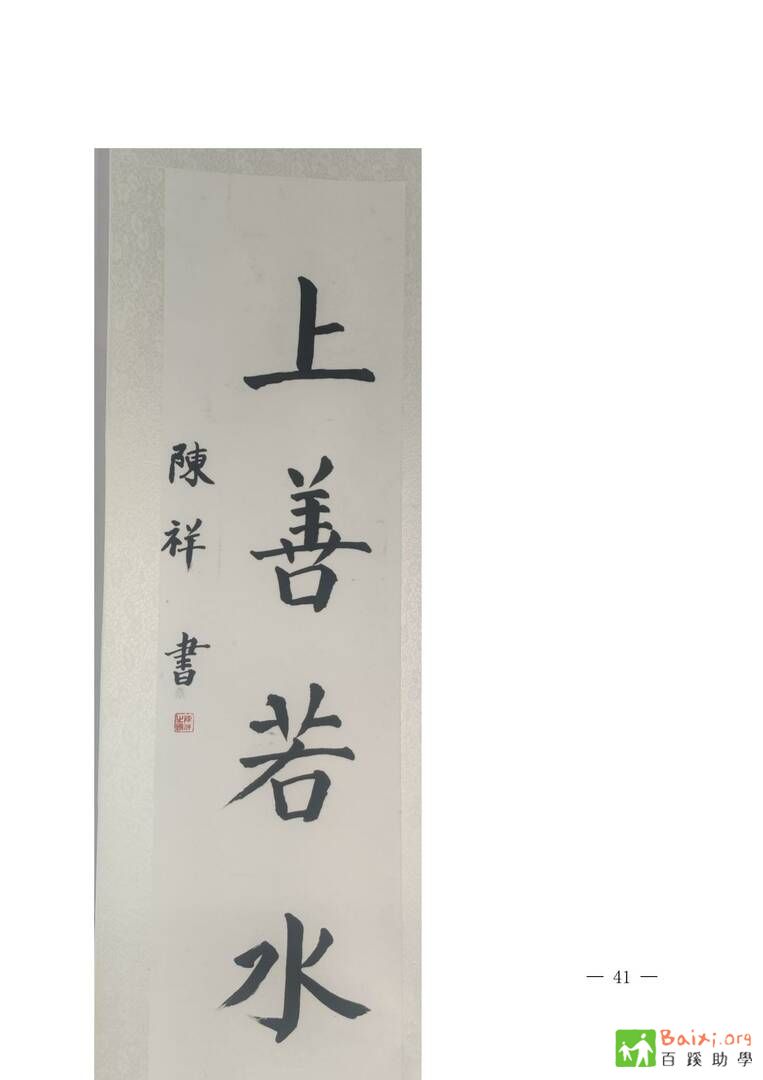 上善若水
陳祥書
— 41 —
Baixi.org
百蹊助學